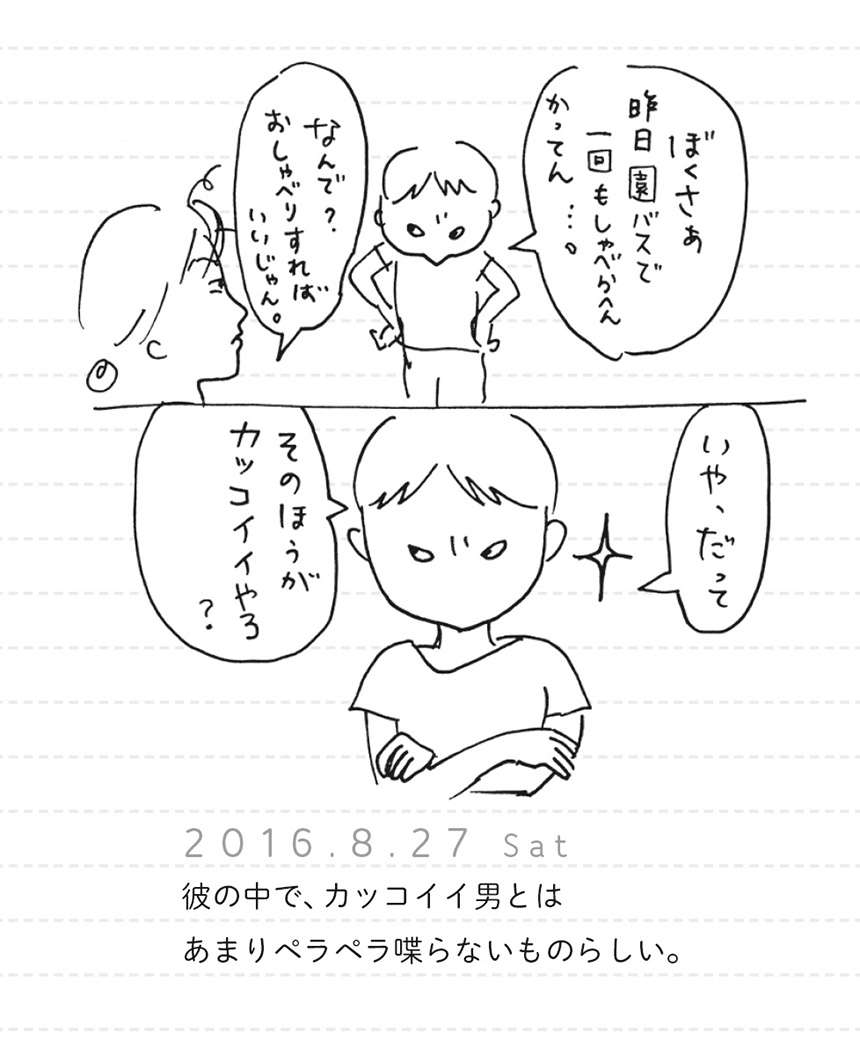 ぼくさぁ
昨日園バスで
一回もしゃべらへん
かってん…。
なんで？
おしゃべりすれば
いいじゃん。
いや、だって
そのほうが
カッコイイやろ
？
2016.8.27 Sat
彼の中で、カッコイイ男とは
あまりペラペラ喋らないものらしい。